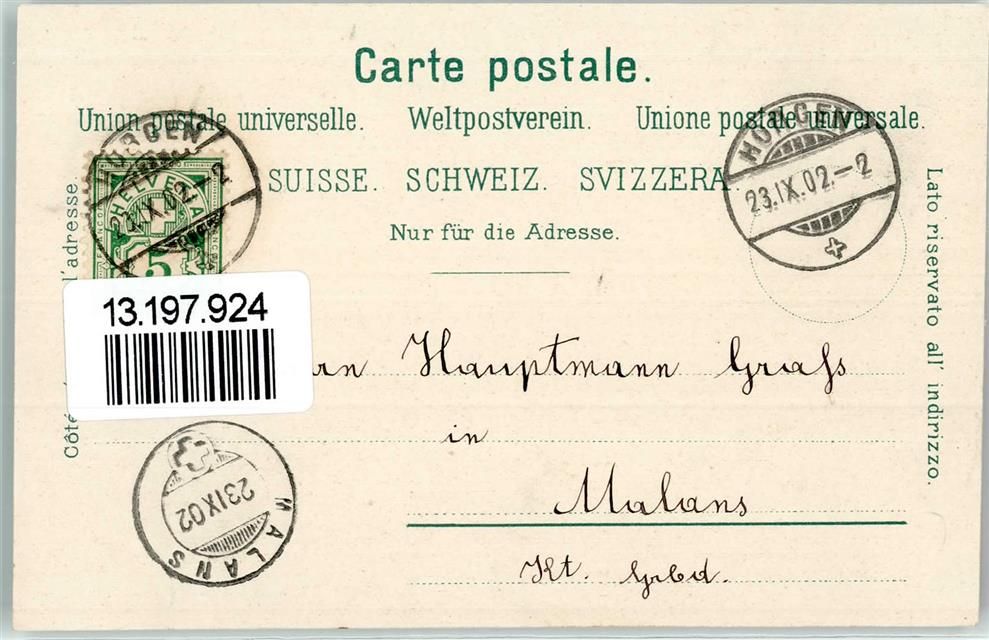 Carte postale.
Union postale universelle. Weltpostverein. Unione postale universale.
SUISSE. SCHWEIZ. SVIZZERA.
Nur für die Adresse.
HORGEN
23.IX.02.–2
HORGEN
IX.02.–2
HELVETIA
5
l'adresse
Côté
Lato riservato all' indirizzo.
13.197.924
rn Hauptmann Grass
in
Malans
Kt. Grbd.
23 IX 02
MALANS